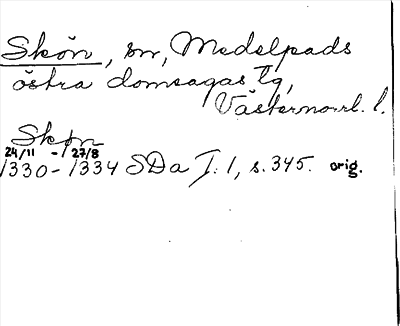 Skön, sn, Medelpads
östra domsagas tg,
Västernorrl. l.
Skøn
24/11 - 27/8
1330-1334 SDa I: 1, s. 345. orig.